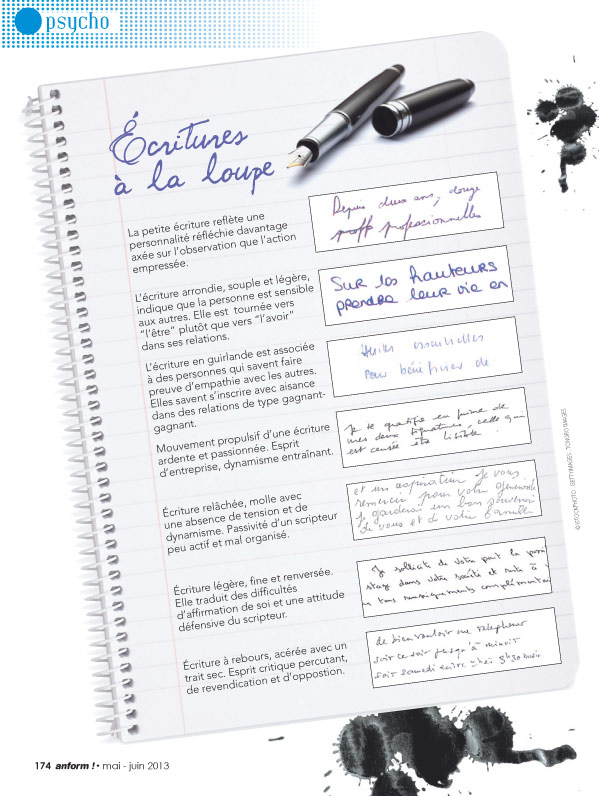 psycho
Écritures
à la loupe
La petite écriture reflète une
personnalité réfléchie davantage
axée sur l'observation que l'action
empressée.
Depuis deux ans, douze
professionnelles
L'écriture arrondie, souple et légère,
indique que la personne est sensible
aux autres. Elle est tournée vers
"l'être" plutôt que vers "l'avoir"
dans ses relations.
Sur les hauteurs
prendre leur vie en
L'écriture en guirlande est associée
à des personnes qui savent faire
preuve d'empathie avec les autres.
Elles savent s'inscrire avec aisance
dans des relations de type gagnant-
gagnant.
Huiles essentielles
Pour bénéficier de
Mouvement propulsif d'une écriture
ardente et passionnée. Esprit
d'entreprise, dynamisme entraînant.
mes deux signatures, celle qui
est censée être lisible.
Écriture relâchée, molle avec
une absence de tension et de
dynamisme. Passivité d'un scripteur
peu actif et mal organisé.
et un aspirateur je vous
remercie pour votre
je garderai un bon souvenir
de vous et de votre famille
Écriture légère, fine et renversée.
Elle traduit des difficultés
d'affirmation de soi et une attitude
défensive du scripteur.
Je sollicite de votre part la
dans votre société et reste à
tous renseignements
Écriture à rebours, acérée avec un
trait sec. Esprit critique percutant,
de revendication et d'oppostion.
de bien vouloir me telephoner
soit ce soir jusqu'à minuit
soit samedi entre
©ISTOCKPHOTO GETTYIMAGES
174 anform ! • mai - juin 2013